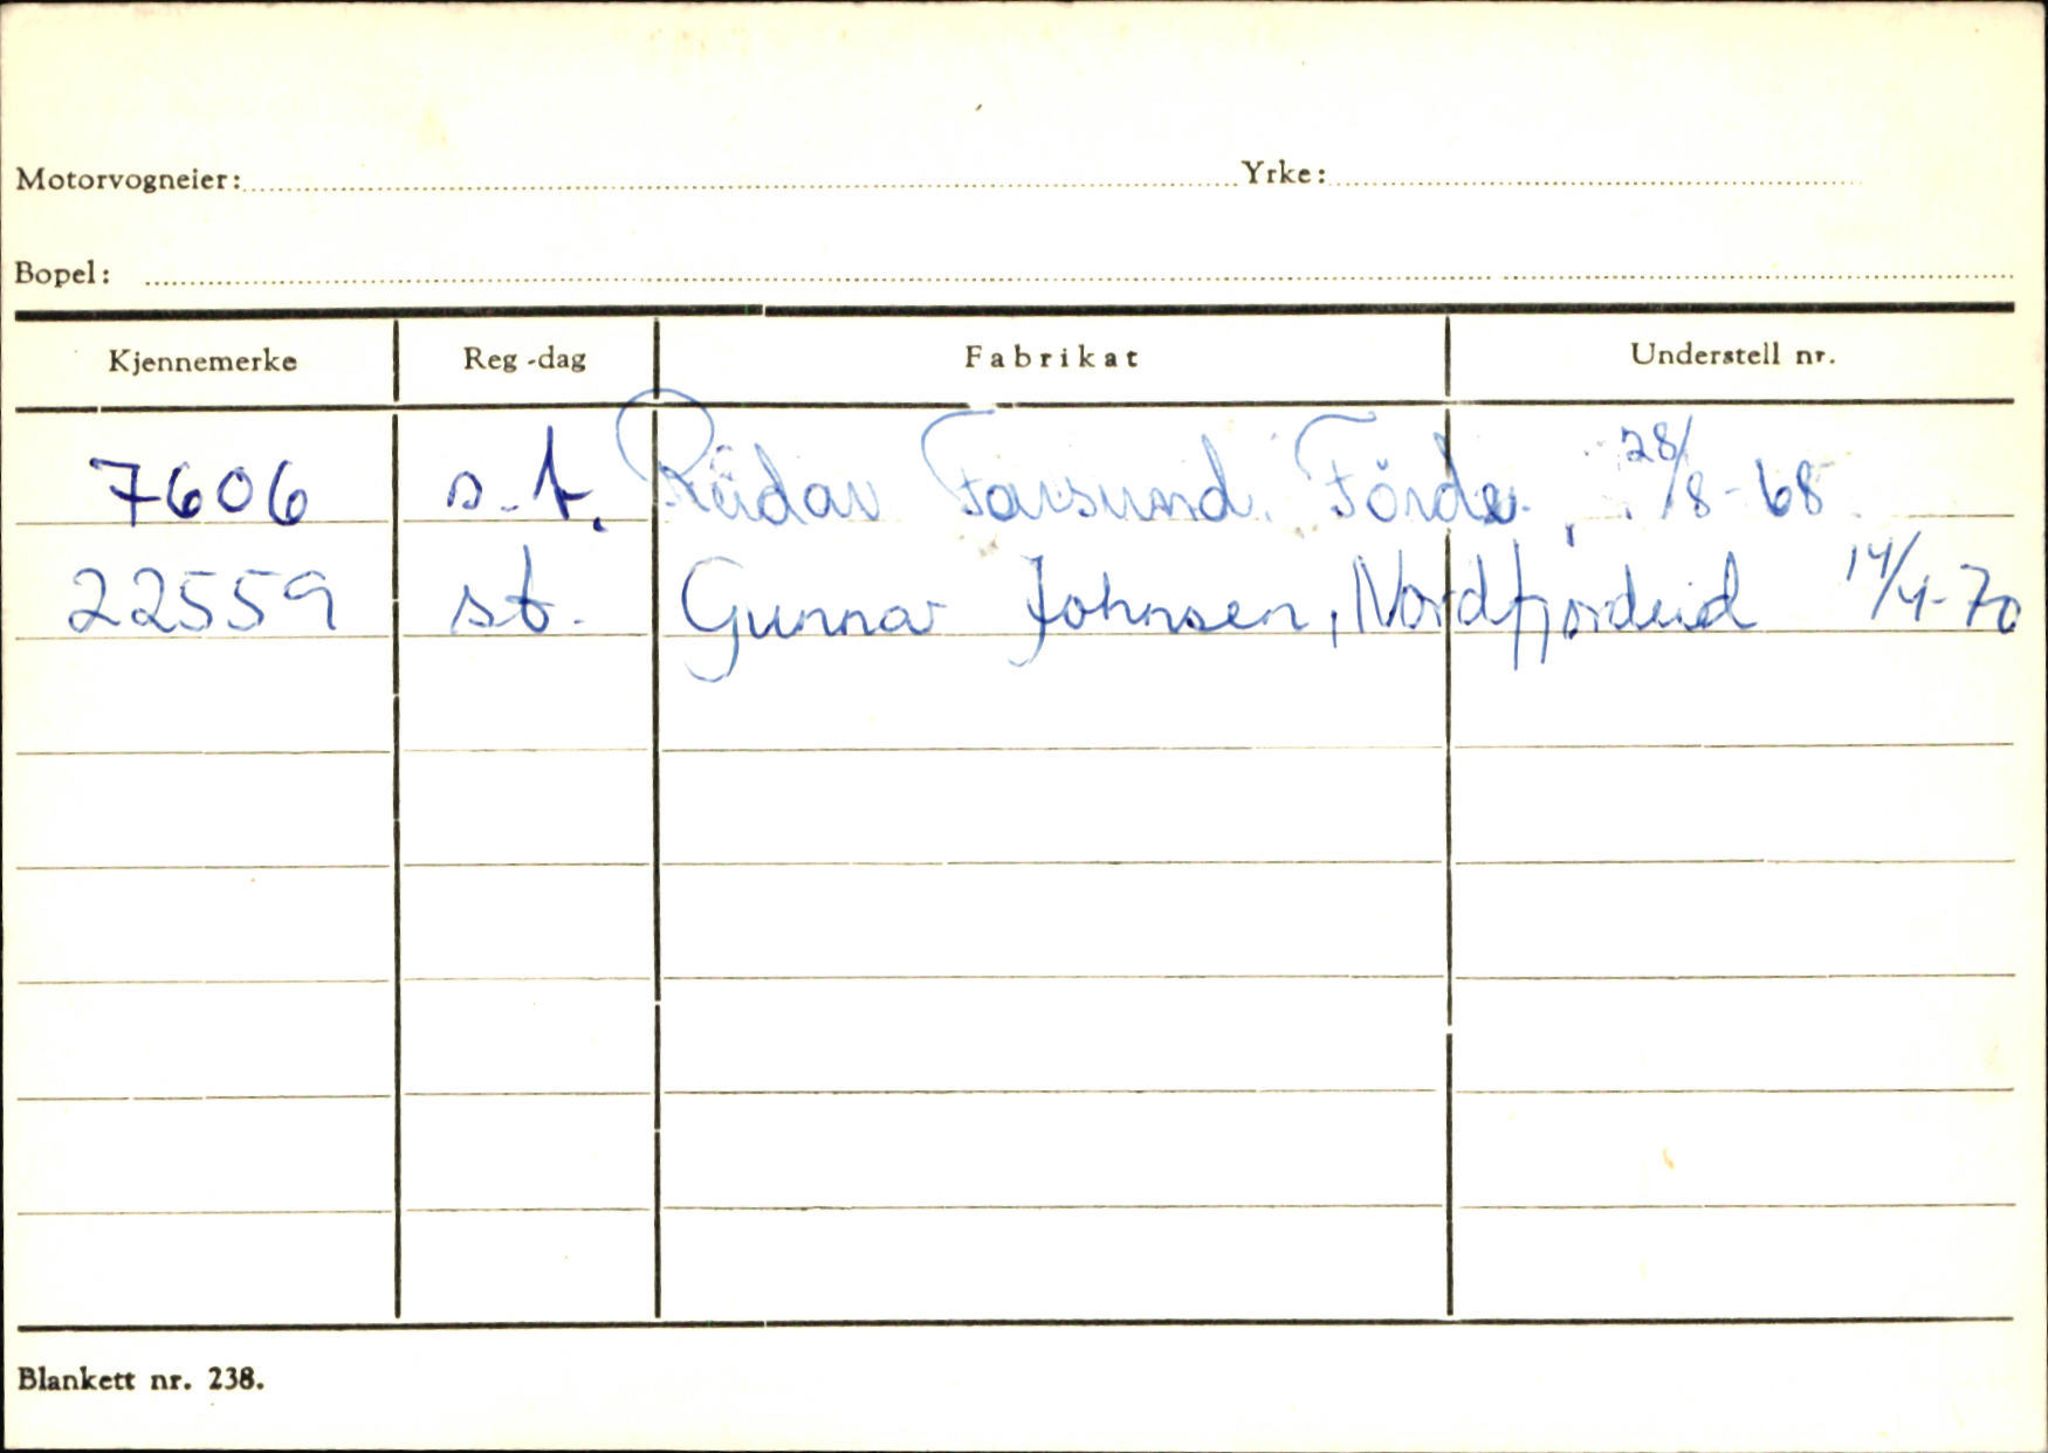 Motorvogneier: Yrke:
Bopel:
Kjennemerke Reg-dag Fabrikat Understell nr.
7606 s.t. Reidar Farsund. Förde. 28/8-68
22559 st. Gunnar Johnsen, Nordfjordeid 14/4-70
Blankett nr. 238.